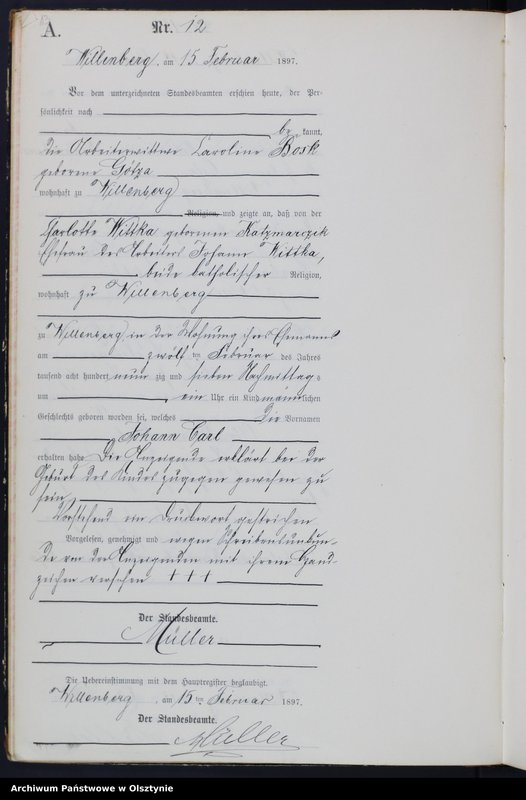 A.
Nr. 12
Willenberg, am 15 Februar 1897.
Vor dem unterzeichneten Standesbeamten erschien heute, der Per-
sönlichkeit nach
be kannt,
die Arbeiterwittwe Caroline Bosk
geborene Gótza
wohnhaft zu Willenberg
Religion, und zeigte an, daß von der
Charlotte Wittka geborenen Katzmarczik
Ehefrau des Arbeiters Johann Wittka,
beide katholischer Religion,
wohnhaft zu Willenberg
zu Willenberg, in der Wohnung ihres Ehemannes
am zwölf ten Februar des Jahres
tausend acht hundert neun zig und sieben Nachmittags
um ein Uhr ein Kind männlichen
Geschlechts geboren worden sei, welches die Vornamen
Johann Carl
erhalten habe. Die Anzeigende erklärt bei der
Geburt des Kindes zugegen gewesen zu
sein,
Vorstehend ein Druckwort gestrichen
Vorgelesen, genehmigt und wegen Schreibensunkun-
de von der Anzeigenden mit ihrem Hand-
zeichen versehen +++
Der Standesbeamte.
Müller
Die Uebereinstimmung mit dem Hauptregister beglaubigt.
Willenberg, am 15 ten Februar 1897.
Der Standesbeamte.
Müller
Archiwum Państwowe w Olsztynie